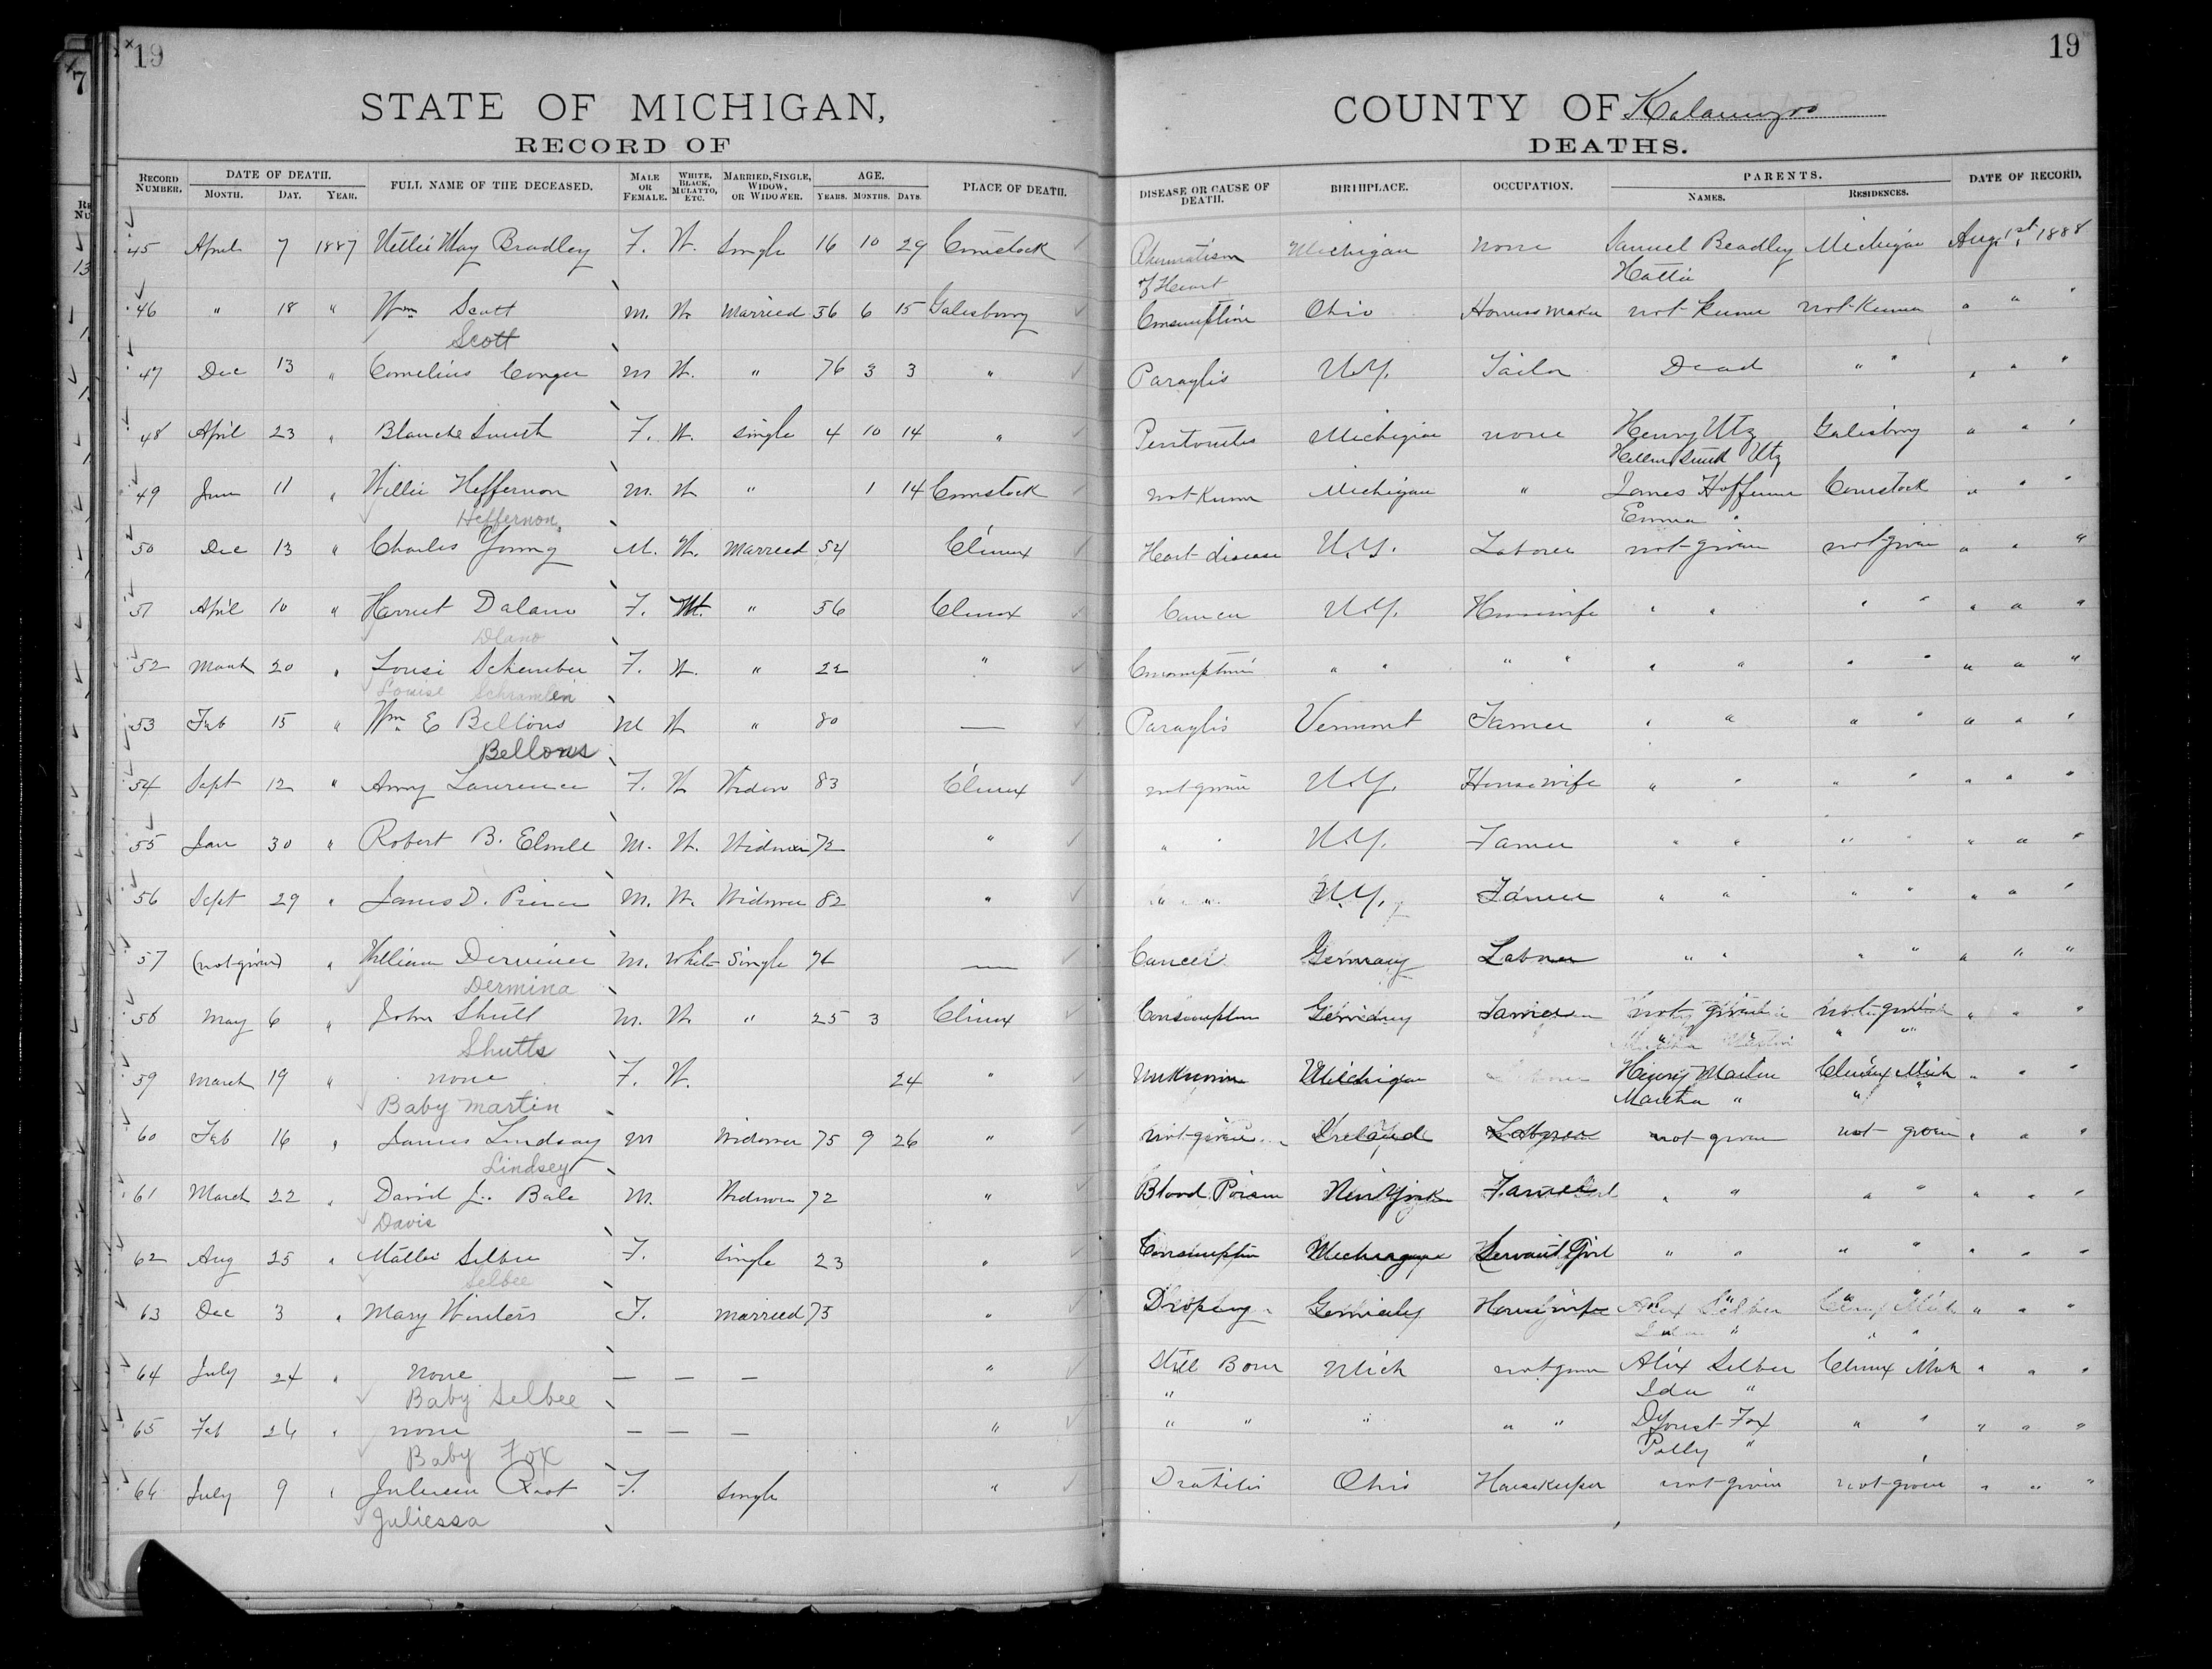 19
19
7
STATE OF MICHIGAN,
COUNTY OF Kalamazoo
RECORD OF
DEATHS.
RECORD NUMBER. DATE OF DEATH. MONTH. DAY. YEAR. FULL NAME OF THE DECEASED. MALE OR FEMALE. WHITE, BLACK, MULATTO, ETC. MARRIED, SINGLE, WIDOW, OR WIDOWER. AGE. YEARS. MONTHS. DAYS. PLACE OF DEATH. DISEASE OR CAUSE OF DEATH. BIRTHPLACE. OCCUPATION. PARENTS. NAMES. RESIDENCES. DATE OF RECORD.
45 April 7 1887 Nettie May Bradley F. W. Single 16 10 29 Comstock Rheumatism Michigan none Samuel Bradley Michigan Aug 1st 1888
of Heart Hattie
46 " 18 " Wm Scott M. W. Married 56 6 15 Galesburg Consumption Ohio Harness Maker not Known not Known " " "
Scott
47 Dec 13 " Cornelius Conger M W. " 76 3 3 " Paraylis N.Y. Tailor Dead " " " " "
48 April 23 " Blanche Smith F. W. Single 4 10 14 " Peritonitis Michigan none Henry Utz Galesburg " " "
Hellen Smith Utz
49 June 11 " Willie Heffernon M. W " 1 14 Comstock not Known Michigan " James Heffernon Comstock " " "
Heffernon Emma "
50 Dec 13 " Charles Young M. W. Married 54 Climax Heart disease N.Y. Laborer not given not given " " "
51 April 10 " Harriet Dalano F. W. " 56 Climax Cancer N.Y. Housewife " " " " " " "
Dlano
52 March 20 " Lousi Schember F. W. " 22 " Consumption " " " " " " " " " " "
Louise Schramlein
53 Feb 15 " Wm E Bellows M W " 80 — Paraylis Vermont Farmer " " " " " " "
Bellows
54 Sept 12 " Amy Lawrence F. W Widow 83 Climax not given N.Y. Housewife " " " " " " "
55 Jan 30 " Robert B. M. W. Widower 72 " " " N.Y. Farmer " " " " " " "
56 Sept 29 " James D. M. W. Widower 82 " " " N.Y. Farmer " " " " " " "
57 (not given) " William M. White Single 76 — Cancer Germany Laborer " " " " " " "
Dermina
58 May 6 " John Shutt M. W " 25 3 Climax Consumption Germany Farmer not given not given " " "
Shutts
59 March 19 " none F. W. 24 " Unknown Michigan Henry Martin Climax Mich " " "
Baby Martin Martha " "
60 Feb 16 " James Lindsay M Widower 75 9 26 " not given Ireland Laborer not given not given " " "
Lindsey
61 March 22 " David J. Bale M. Widower 72 " Blood Poison New York Farmer " " " " " " "
Davis
62 Aug 25 " Mattie Selbee F. Single 23 " Consumption Michigan Servant Girl " " " " " " "
Selbee
63 Dec 3 " Mary Winters F. Married 75 " Dropsy Germany Housewife " " " " " " "
64 July 24 " none — — — " Still Born Mich not given Alix Selbee Climax Mich " " "
Baby Selbee " Ida "
65 Feb 26 " none — — — " " " " " " Deforest Fox " " " " "
Baby Fox Polly "
66 July 9 " Root F. Single " Ohio Housekeeper not given not given " " "
Juliessa